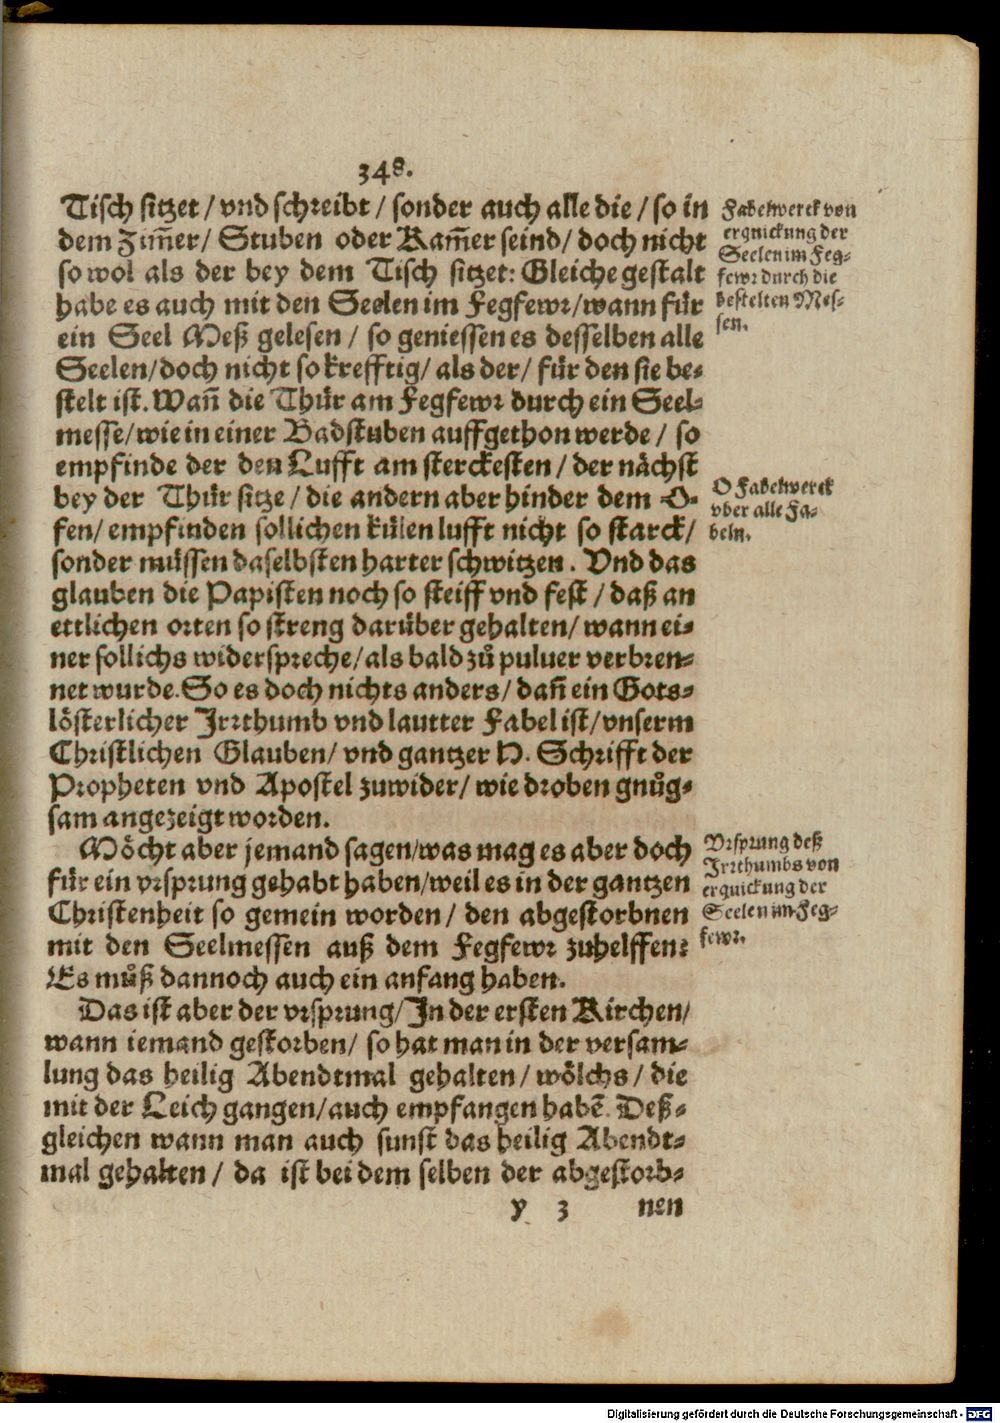 348.
Tisch sitzet / vnd schreibt / sonder auch alle die / so in
dem Zim̃er / Stuben oder Kam̃er seind / doch nicht
so wol als der bey dem Tisch sitzet: Gleiche gestalt
habe es auch mit den Seelen im Fegfewr / wann für
ein Seel Meß gelesen / so geniessen es desselben alle
Seelen / doch nicht so krefftig / als der / für den sie be⸗
stelt ist. Wañ die Thür am Fegfewr durch ein Seel⸗
messe / wie in einer Badstuben auffgethon werde / so
empfinde der den Lufft am sterckesten / der nächst
bey der Thür sitze / die andern aber hinder dem O⸗
fen / empfinden sollichen külen lufft nicht so starck /
sonder müssen daselbsten harter schwitzen. Vnd das
glauben die Papisten noch so steiff vnd fest / daß an
ettlichen orten so streng darüber gehalten / wann ei⸗
ner sollichs widerspreche / als bald zů puluer verbren⸗
net wurde. So es doch nichts anders / dañ ein Gots⸗
lösterlicher Irrthumb vnd lautter Fabel ist / vnserm
Christlichen Glauben / vnd gantzer H. Schrifft der
Propheten vnd Apostel zuwider / wie droben gnůg⸗
sam angezeigt worden.
Möcht aber jemand sagen / was mag es aber doch
für ein vrsprung gehabt haben / weil es in der gantzen
Christenheit so gemein worden / den abgestorbnen
mit den Seelmessen auß dem Fegfewr zuhelffen?
Es můß dannoch auch ein anfang haben.
Das ist aber der vrsprung / In der ersten Kirchen /
wann iemand gestorben / so hat man in der versam⸗
lung das heilig Abendtmal gehalten / wölchs / die
mit der Leich gangen / auch empfangen habẽ. Deß⸗
gleichen wann man auch sunst das heilig Abendt⸗
mal gehalten / da ist bei dem selben der abgestorb⸗
y 3 nen
Fabelwerck von
erquickung der
Seelen im Feg⸗
fewr durch die
bestelten Mes⸗
sen.
O Fabelwerck
vber alle Fa⸗
beln.
Vrsprung deß
Irrthumbs von
erquickung der
Seelen im Feg⸗
fewr.
Digitalisierung gefördert durch die Deutsche Forschungsgemeinschaft - DFG